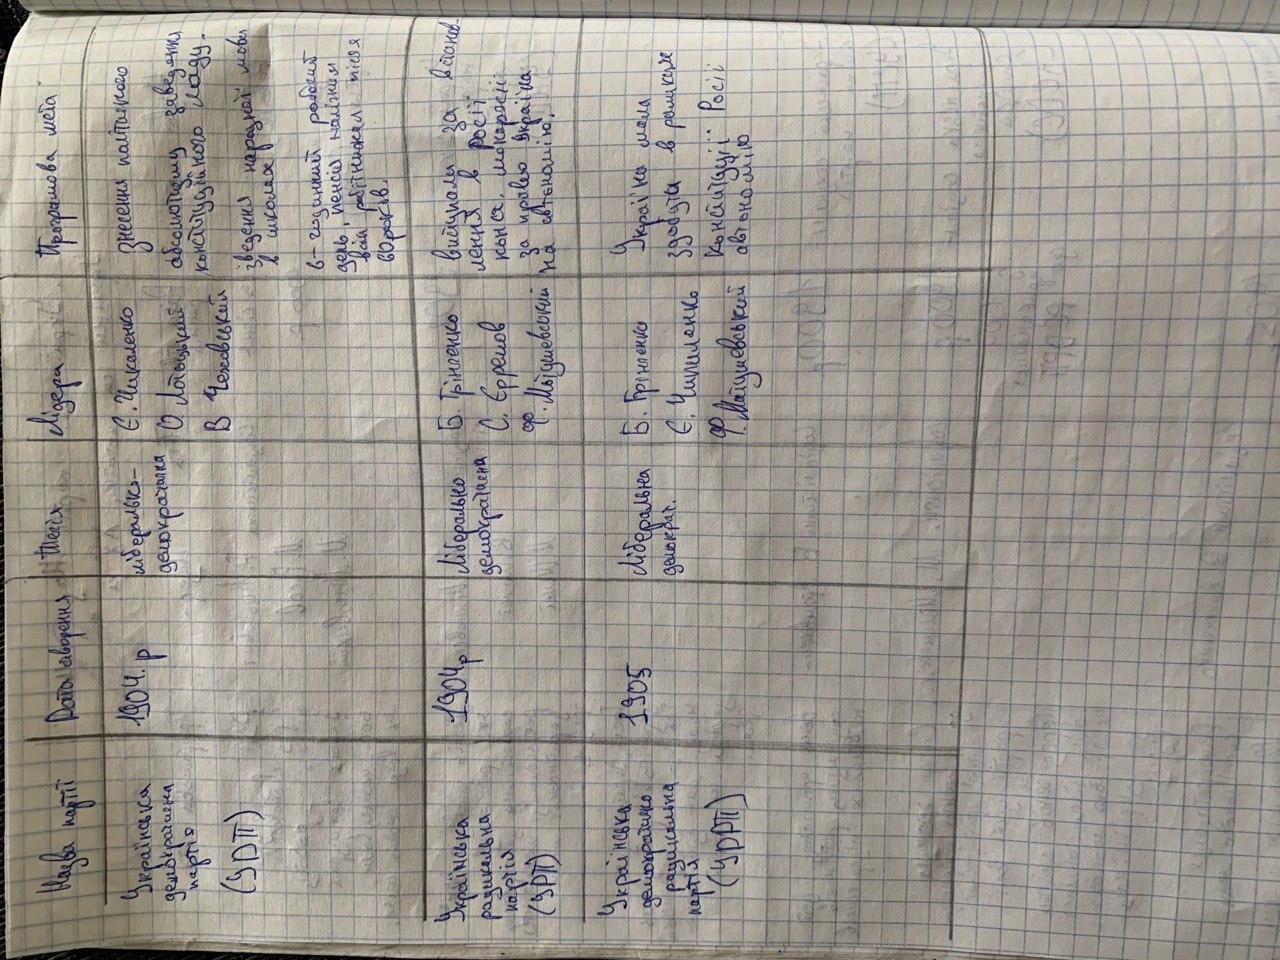 Назва партії
Дата створення
Течія
Лідера
Програмова мета
Українська
демократична
партія
(УДП)
1904. р
ліберально-
демократична
Є. Чикаленко
О Лотоцький
В Чеховський
знесення політичного
абсолютизму заведення
конституційного ладу.
зведення народної мови
в школах
8-годинний робочий
день, пенсія
робітникам після
60 років.
Українська
радикальна
партія
(УРП)
1904р
Ліберально
демократична
Б Грінченко
С. Єфремов
Ф. Матушевський
виступали за встанов-
лення в Росії
конст. монархії
за право України
на автономію.
Українська
демократично
радикальна
партія
(УДРП)
1905
Ліберальна
демократ.
Б. Грінченко
Є. Чикаленко
Ф. Матушевський
Україна мала
здобути в рамках
Конституції Росії
автономію